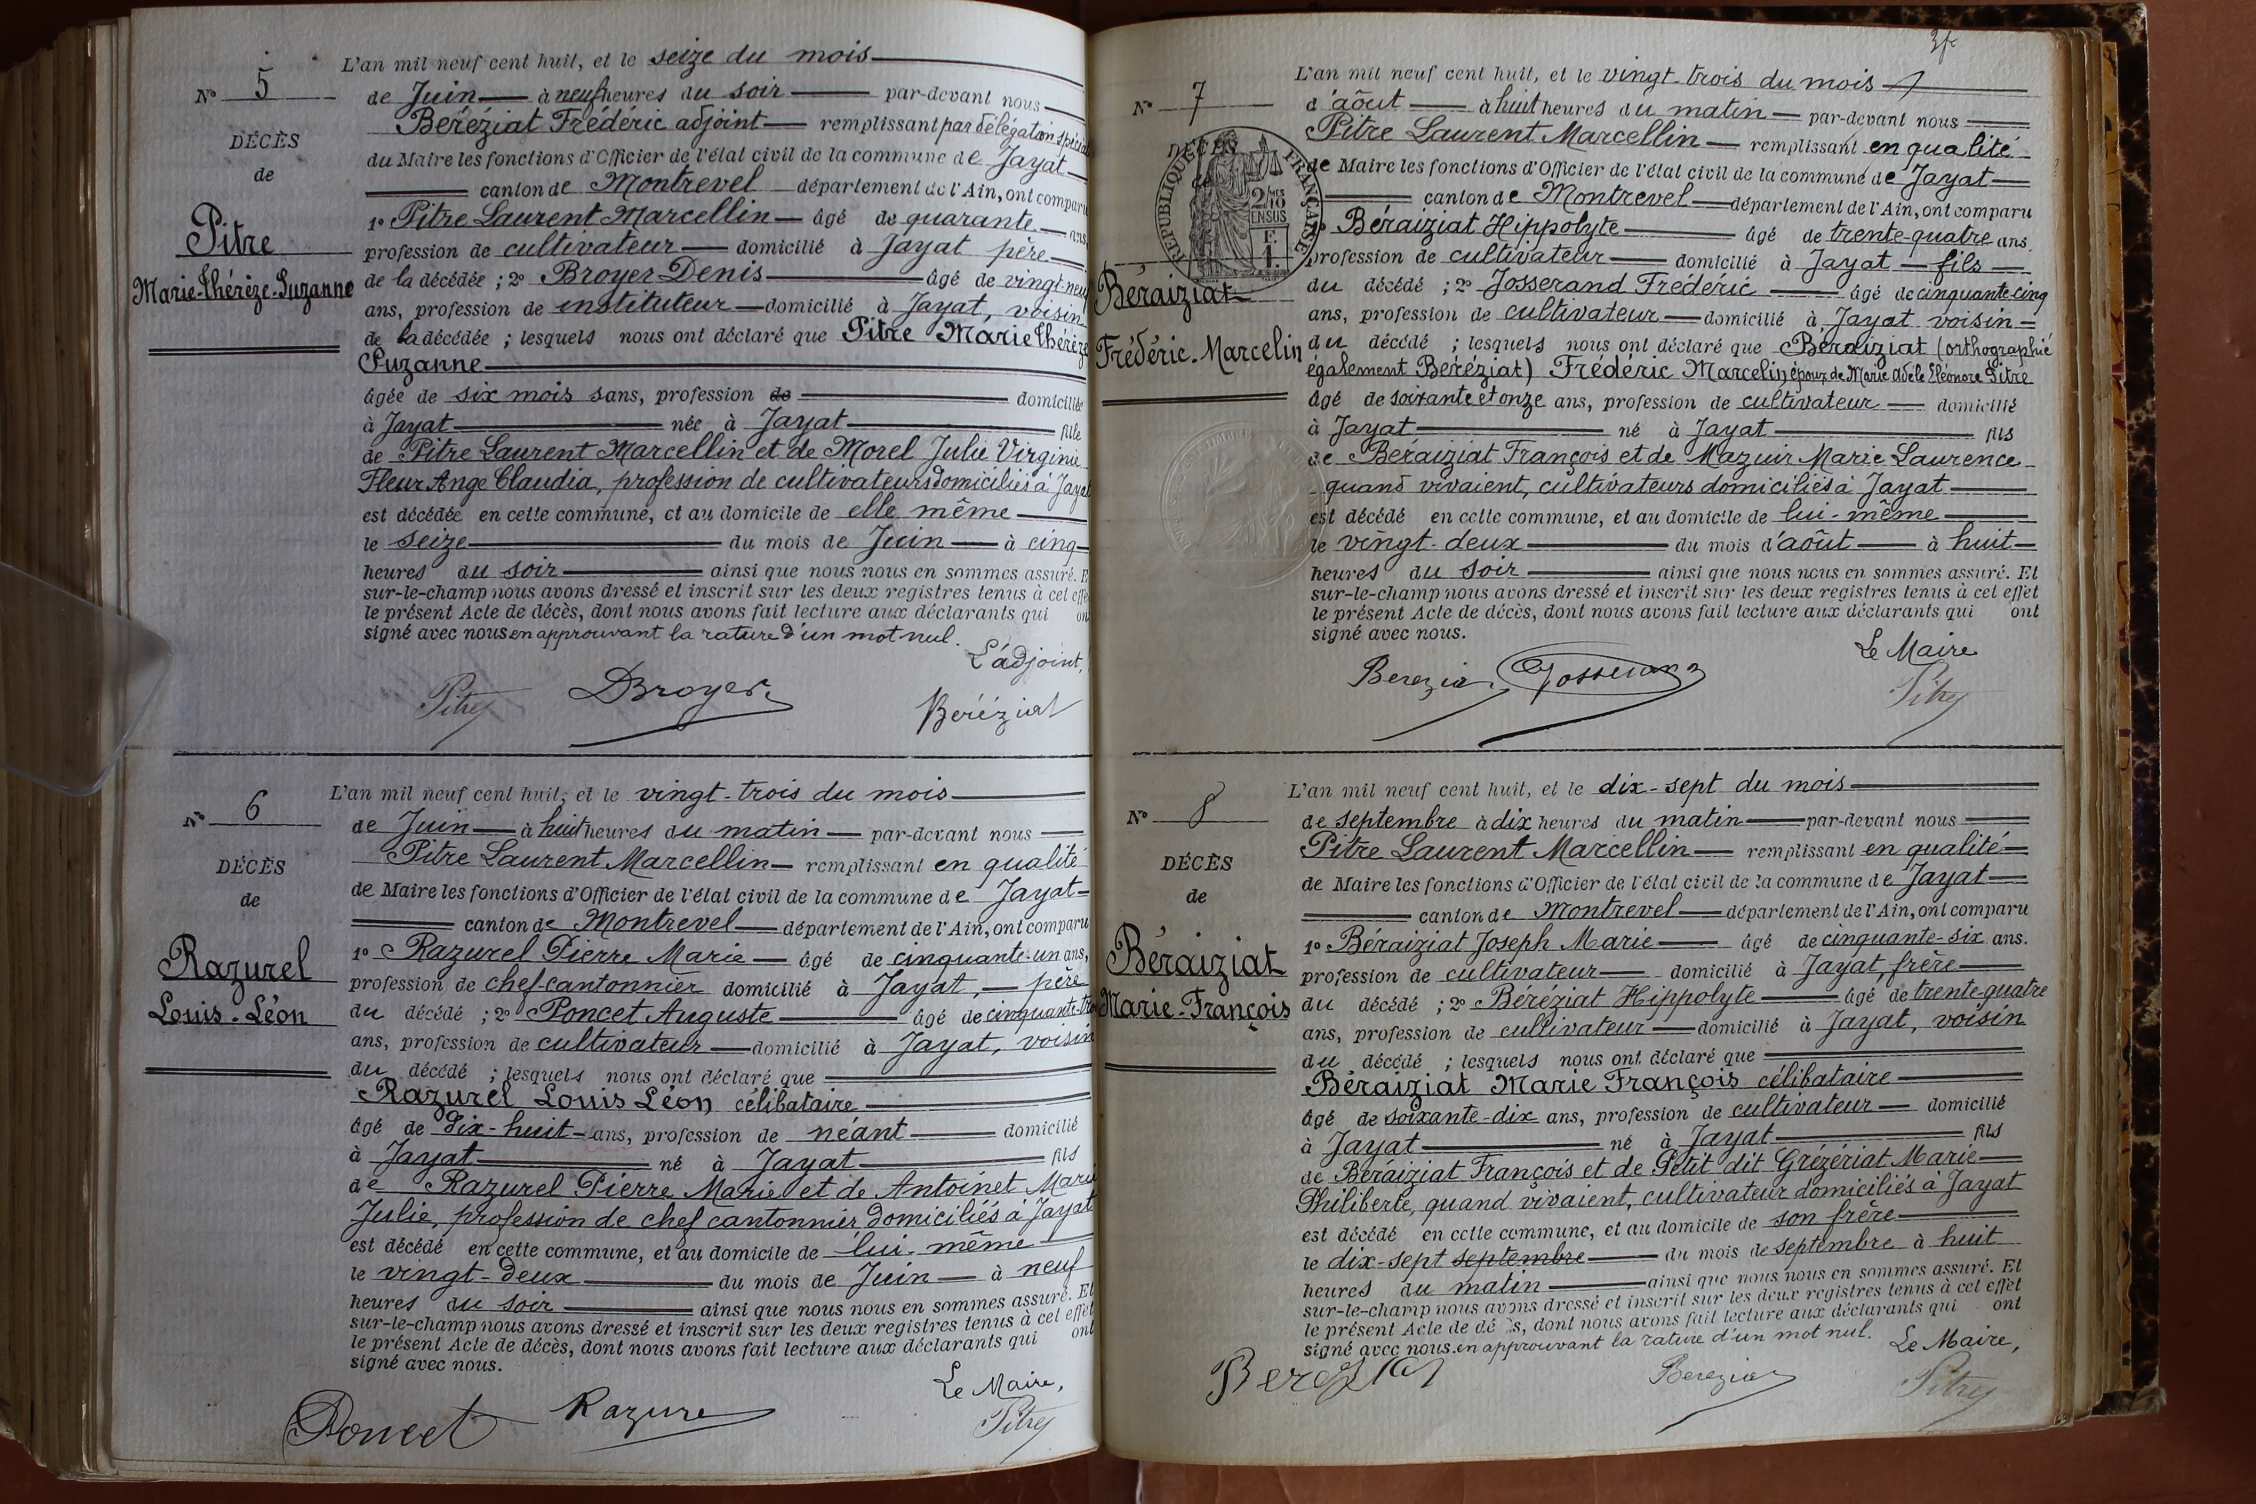 N° 5
DÉCÈS
de
Pitre
Marie-Thérèze-Suzanne
L'an mil neuf cent huit, et le seize du mois
de Juin à neuf heures du soir par-devant nous
Béréziat Frédéric adjoint remplissant par délégation spéciale
du Maire les fonctions d'Officier de l'état civil de la commune de Jayat
canton de Montrevel département de l'Ain, ont comparu
1° Pitre Laurent Marcellin âgé de quarante ans
profession de cultivateur domicilié à Jayat père
de la décédée ; 2° Broyer Denis âgé de vingt-neuf
ans, profession de instituteur domicilié à Jayat, voisin
de la décédée ; lesquels nous ont déclaré que Pitre Marie Thérèze
Suzanne
âgée de six mois sans, profession de domiciliée
à Jayat née à Jayat fille
de Pitre Laurent Marcellin et de Morel Julie Virginie
Fleur Ange Claudia, profession de cultivateurs domiciliés à Jayat
est décédée en cette commune, et au domicile de elle même
le seize du mois de Juin à cinq
heures du soir ainsi que nous nous en sommes assuré. E
sur-le-champ nous avons dressé et inscrit sur les deux registres tenus à cet effe
le présent Acte de décès, dont nous avons fait lecture aux déclarants qui on
signé avec nous en approuvant la rature d'un mot nul.
L'adjoint,
Pitre DBroyer Béréziat
N° 6
DÉCÈS
de
Razurel
Louis-Léon
L'an mil neuf cent huit, et le vingt-trois du mois
de Juin à huit heures du matin par-devant nous
Pitre Laurent Marcellin remplissant en qualité
de Maire les fonctions d'Officier de l'état civil de la commune de Jayat
canton de Montrevel département de l'Ain, ont comparu
1° Razurel Pierre Marie âgé de cinquante-un ans,
profession de chef-cantonnier domicilié à Jayat, père
du décédé ; 2° Poncet Auguste âgé de cinquante-tro
ans, profession de cultivateur domicilié à Jayat, voisin
du décédé ; lesquels nous ont déclaré que
Razurel Louis Léon célibataire
âgé de dix-huit ans, profession de néant domicilié
à Jayat né à Jayat fils
de Razurel Pierre Marie et de Antoinet Marie
Julie, profession de chef cantonnier domiciliés à Jayat
est décédé en cette commune, et au domicile de lui-même
le vingt-deux du mois de Juin à neuf
heures du soir ainsi que nous nous en sommes assuré. Et
sur-le-champ nous avons dressé et inscrit sur les deux registres tenus à cet effet
le présent Acte de décès, dont nous avons fait lecture aux déclarants qui ont
signé avec nous.
Le Maire,
Poncet Razurel Pitre
N° 7
DÉCÈS
RÉPUBLIQUE FRANÇAISE
2/10 EN SUS
Béraiziat
Frédéric-Marcelin
L'an mil neuf cent huit, et le vingt-trois du mois
d'août à huit heures du matin par-devant nous
Pitre Laurent Marcellin remplissant en qualité
de Maire les fonctions d'Officier de l'état civil de la commune de Jayat
canton de Montrevel département de l'Ain, ont comparu
Béraiziat Hippolyte âgé de trente-quatre ans.
profession de cultivateur domicilié à Jayat fils
du décédé ; 2° Josserand Frédéric âgé de cinquante cinq
ans, profession de cultivateur domicilié à Jayat voisin
du décédé ; lesquels nous ont déclaré que Béraiziat (orthographié
également Béréziat) Frédéric Marcelin époux de Marie Adèle Eléonore Pitre
âgé de soixante et onze ans, profession de cultivateur domicilié
à Jayat né à Jayat fils
de Béraiziat François et de Mazuir Marie Laurence
quand vivaient, cultivateurs domiciliés à Jayat
est décédé en cette commune, et au domicile de lui-même
le vingt-deux du mois d'août à huit
heures du soir ainsi que nous nous en sommes assuré. Et
sur-le-champ nous avons dressé et inscrit sur les deux registres tenus à cet effet
le présent Acte de décès, dont nous avons fait lecture aux déclarants qui ont
signé avec nous.
Le Maire
Bereziat Josserand Pitre
N° 8
DÉCÈS
de
Béraiziat
Marie-François
L'an mil neuf cent huit, et le dix-sept du mois
de septembre à dix heures du matin par-devant nous
Pitre Laurent Marcellin remplissant en qualité
de Maire les fonctions d'Officier de l'état civil de la commune de Jayat
canton de Montrevel département de l'Ain, ont comparu
1° Béraiziat Joseph Marie âgé de cinquante-six ans.
profession de cultivateur domicilié à Jayat, frère
du décédé ; 2° Béréziat Hippolyte âgé de trente-quatre
ans, profession de cultivateur domicilié à Jayat, voisin
du décédé ; lesquels nous ont déclaré que
Béraiziat Marie François célibataire
âgé de soixante-dix ans, profession de cultivateur domicilié
à Jayat né à Jayat fils
de Béraiziat François et de Petit dit Grézériat Marie
Philiberte, quand vivaient, cultivateur domiciliés à Jayat
est décédé en cette commune, et au domicile de son frère
le dix-sept septembre du mois de septembre à huit
heures du matin ainsi que nous nous en sommes assuré. Et
sur-le-champ nous avons dressé et inscrit sur les deux registres tenus à cet effet
le présent Acte de dé s, dont nous avons fait lecture aux déclarants qui ont
signé avec nous en approuvant la rature d'un mot nul.
Le Maire,
Bereziat Bereziat Pitre